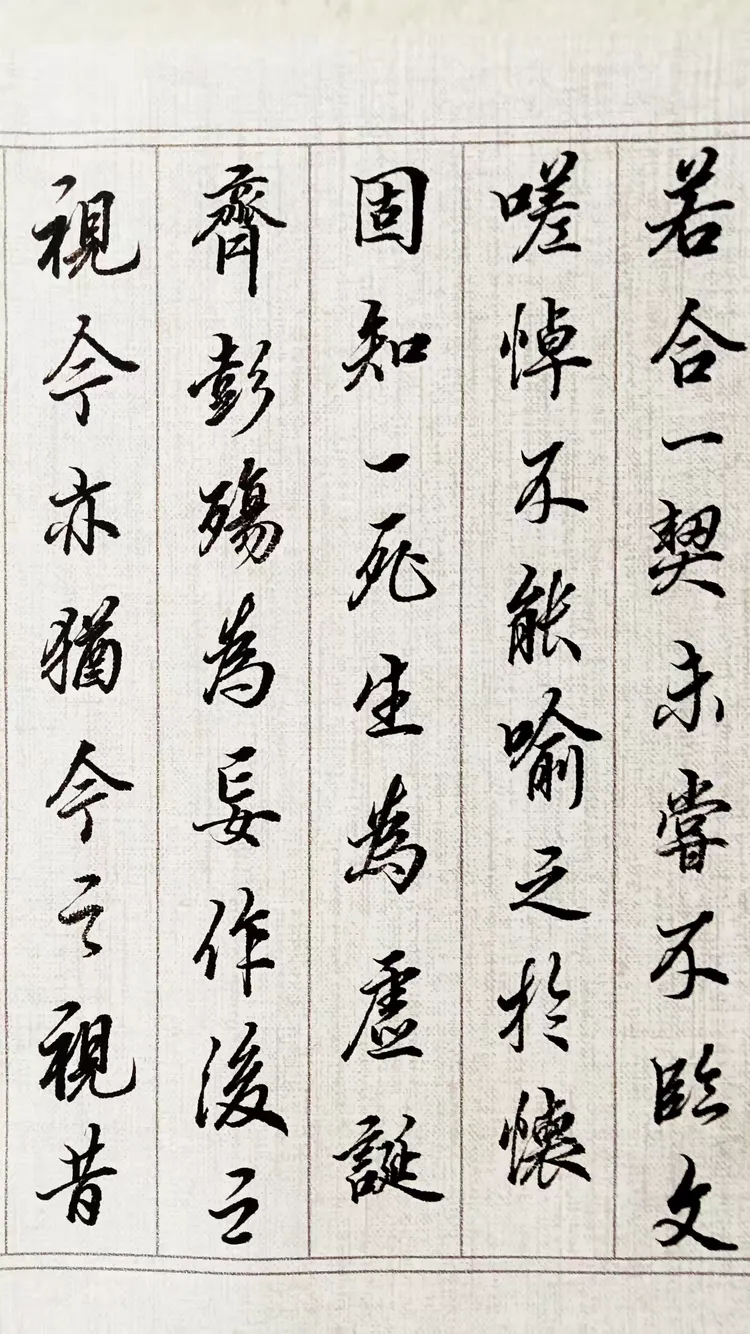 若合一契未嘗不臨文
嗟悼不能喻之於懷
固知一死生為虛誕
齊彭殤為妄作後之
視今亦猶今之視昔